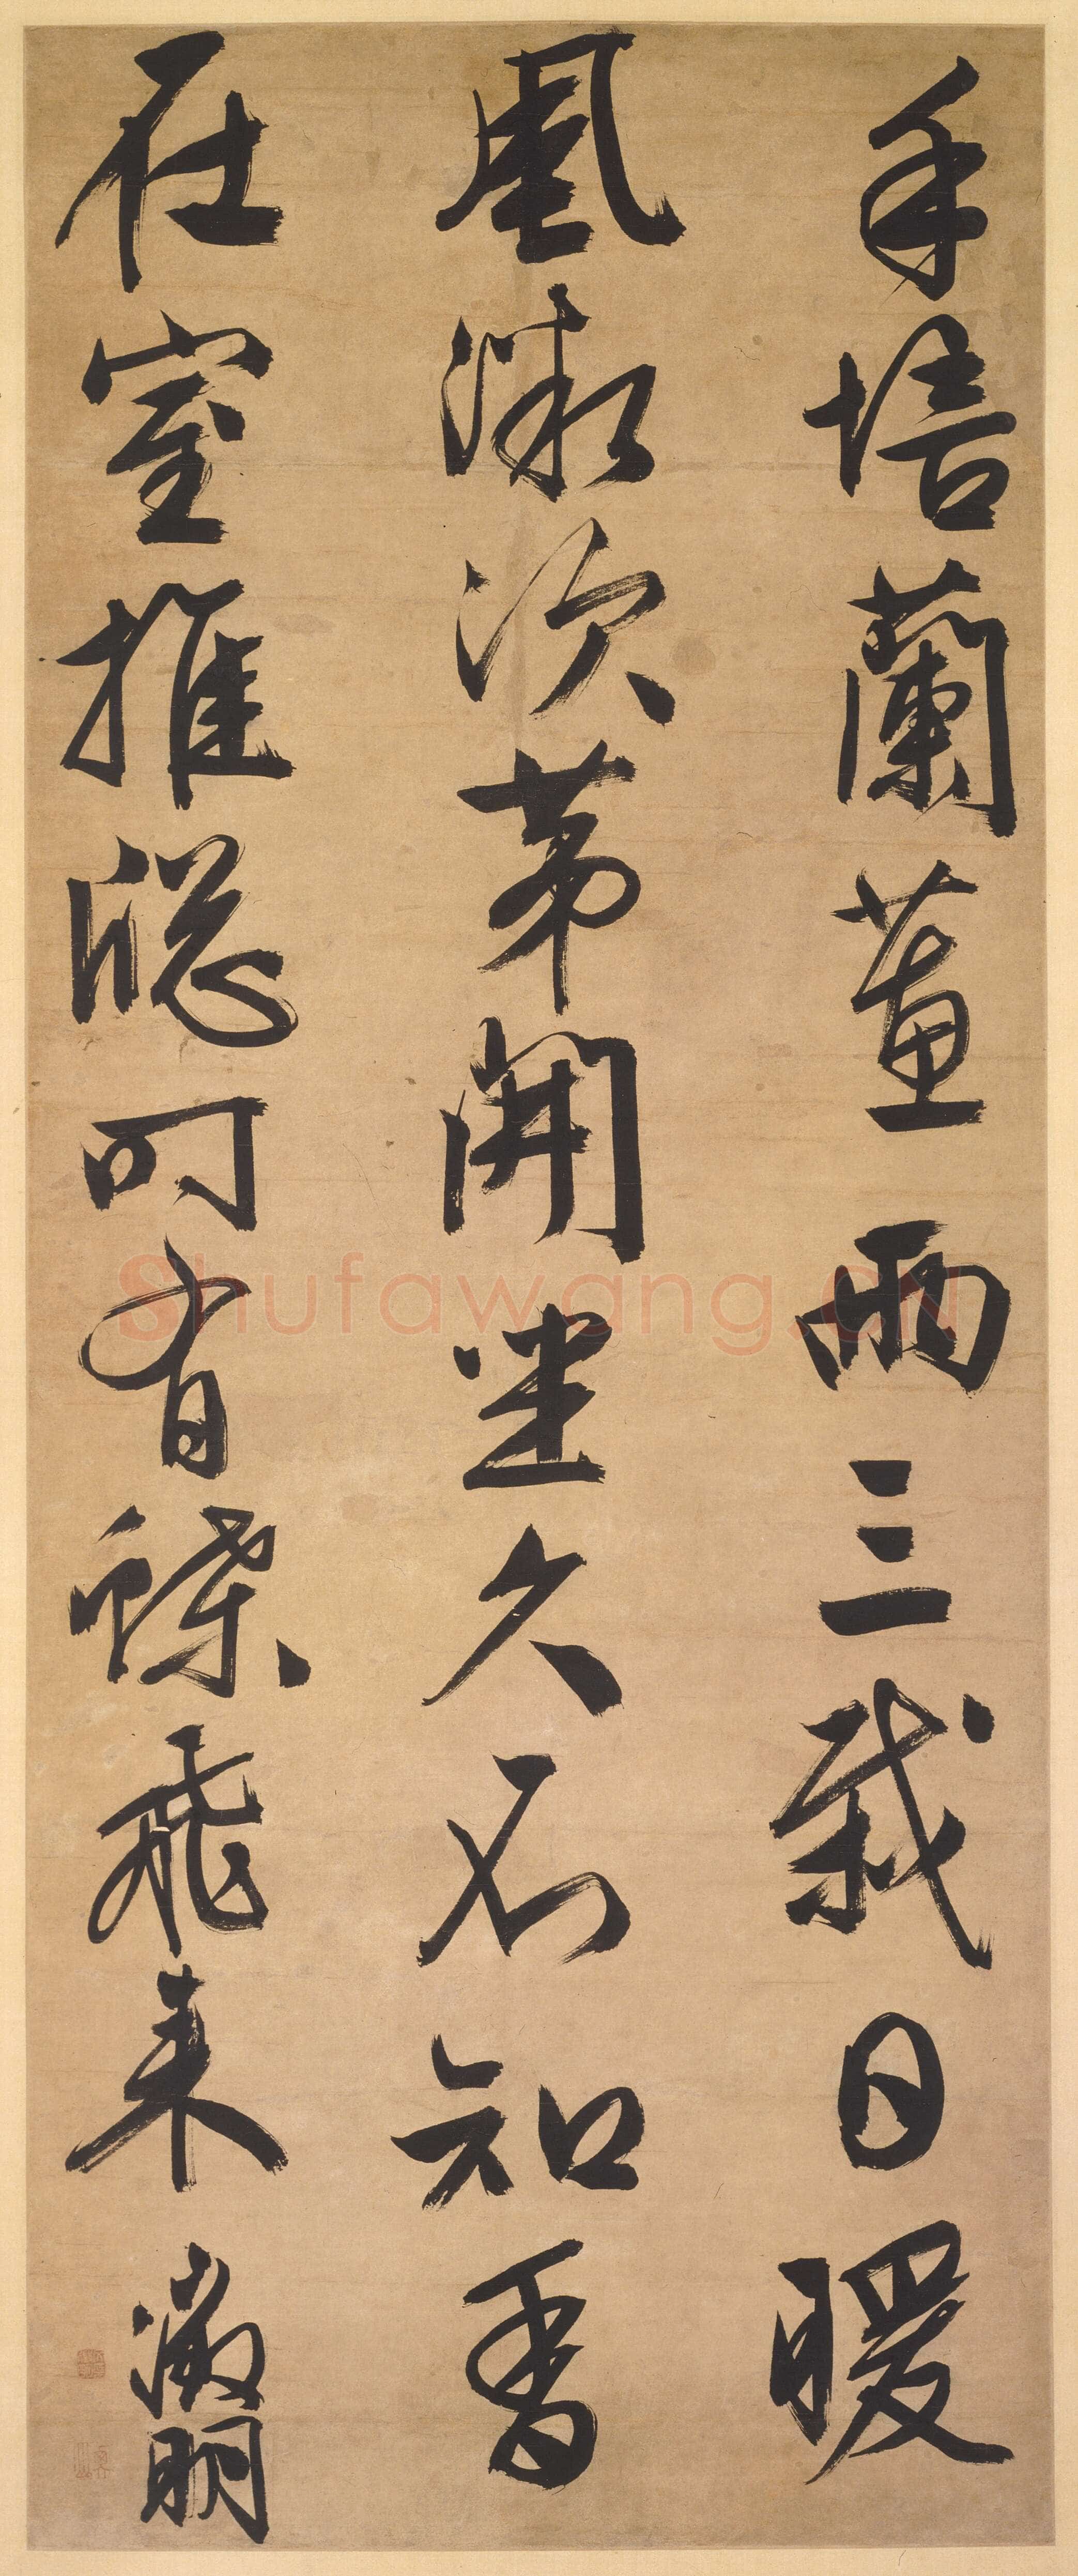 手培蘭蕙兩三栽日暖
風微次苐開坐久不知香
在室推窓时有蝶飛来
徵明
Shufawang.CN